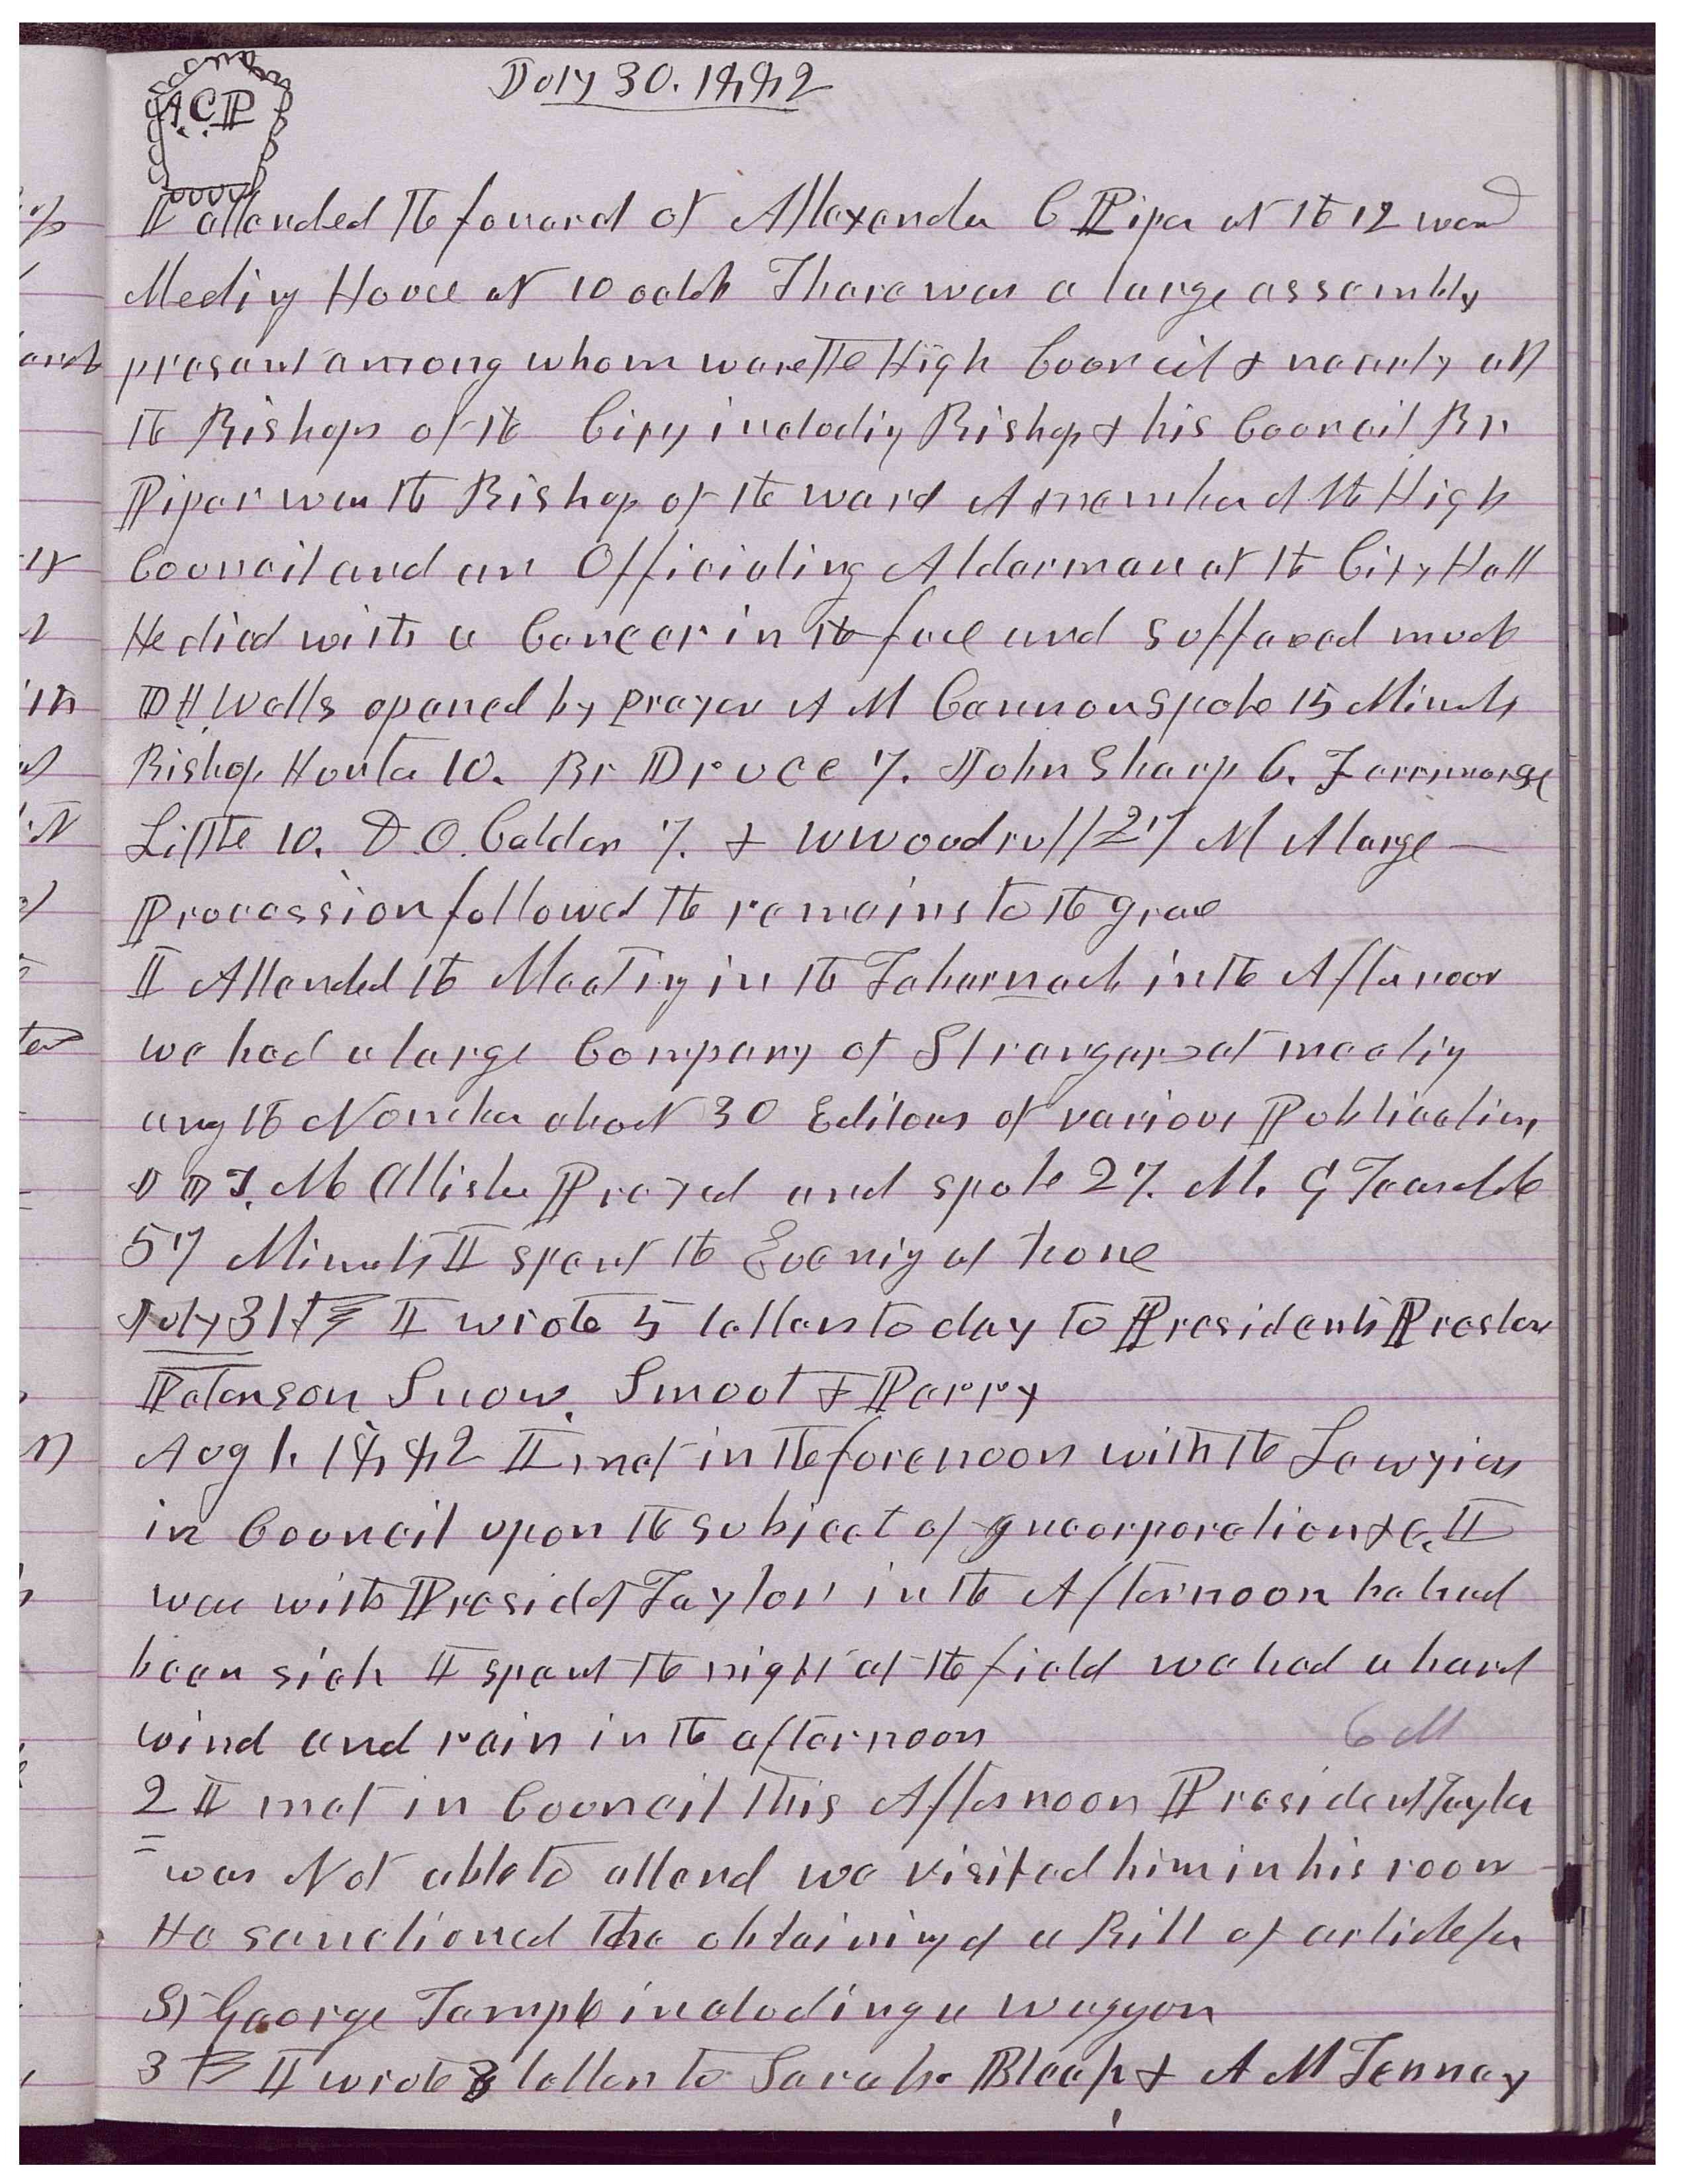 July 30. 1882
A.C.P
I attended the funeral of Allexander C Piper at the 12 ward
Meeting House at 10 oclok There was a large assembly
present among whom ware the High Council & nearly all
the Bishops of the City including Bishop & his Council Br
Piper was the Bishop of the ward A member of the High
Council and an Officiating Alderman at the City Hall
He died with a Cancer in the face and suffered much
D H Wells opened by prayer A M Cannon Spoke 15 Minuts
Bishop Hunter 10. Br Druce 7. John Sharp 6.
Little 10. D. O. Calder 7. & W Woodruff 27 M A large
Procession followed the remains to the grave
I Attended the Meeting in the Tabernacle in the Afternoon
we had a large Company of Strangers at meeting
amg the Number about 30 Editors of various Publications
J D T. McAllister Prayed and spoke 27. M. G Teasdale
57 Minuts I spent the Evenig at home
July 31st I wrote 5 letters to day to Presidents Preston
Peterson Snow, Smoot & Parry
Aug 1. 1882 I met in the forenoon with the Lawyiers
in Council upon the subject of Incorporation &c. I
was with Presidet Taylor in the Afternoon he had
been sick I spent the night at the field we had a hard
wind and rain in the afternoon
6 M
2 I met in Council this Afternoon President Taylor
was Not able to attend we visited him in his room
He sanctioned the obtaining of a Bill of article for
St George Temple including a waggon
3rd I wrote 3 letters to Sarah. Bleak & A M Tenney